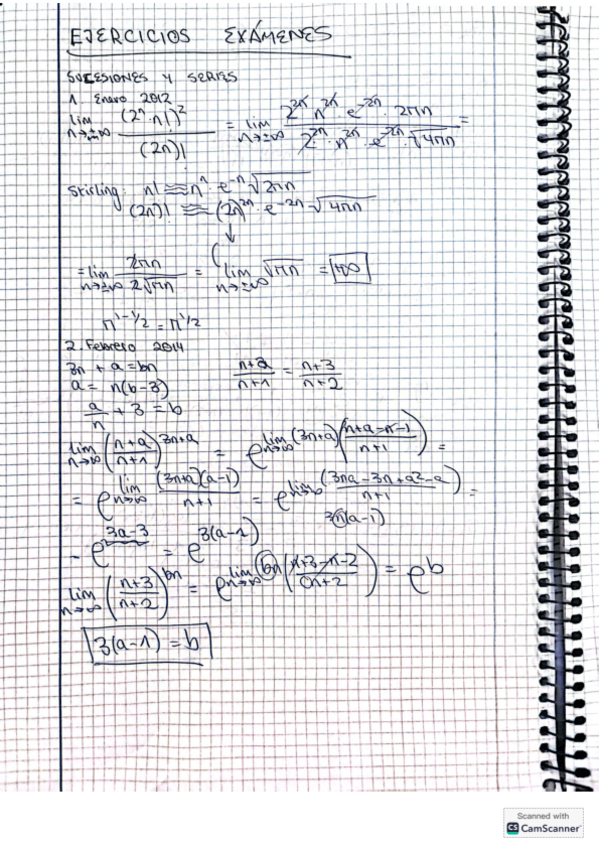 EJERCICIOS EXÁMENES
SUCESIONES Y SERIES
1. Enero 2012
lim n→+∞ (2ⁿ·n!)² / (2n)! = lim n→+∞ 2²ⁿ n²ⁿ · e⁻²ⁿ · 2πn / 2²ⁿ · n²ⁿ · e⁻²ⁿ · √4πn =
Stirling: n! ≈ nⁿ · e⁻ⁿ √2πn
(2n)! ≈ (2n)²ⁿ · e⁻²ⁿ √4πn
↓
= lim n→+∞ 2πn / 2√πn = lim n→+∞ √πn = +∞
n^(1-1/2) = n^(1/2)
2. Febrero 2014
3n + a = bn
a = n(b-3)
a/n + 3 = b
n+a / n+1 = n+3 / n+2
lim n→∞ (n+a / n+1)^(3n+a) = e^(lim n→∞ (3n+a)(n+a-n-1 / n+1)) =
= e^(lim n→∞ (3n+a)(a-1) / n+1) = e^(lim n→∞ (3na-3n+a²-a / n+1)) =
3n(a-1)
= e^(3a-3) = e^(3(a-1))
lim n→∞ (n+3 / n+2)^(bn) = e^(lim n→∞ bn (n+3-n-2 / n+2)) = e^b
3(a-1) = b
Scanned with
CS CamScanner